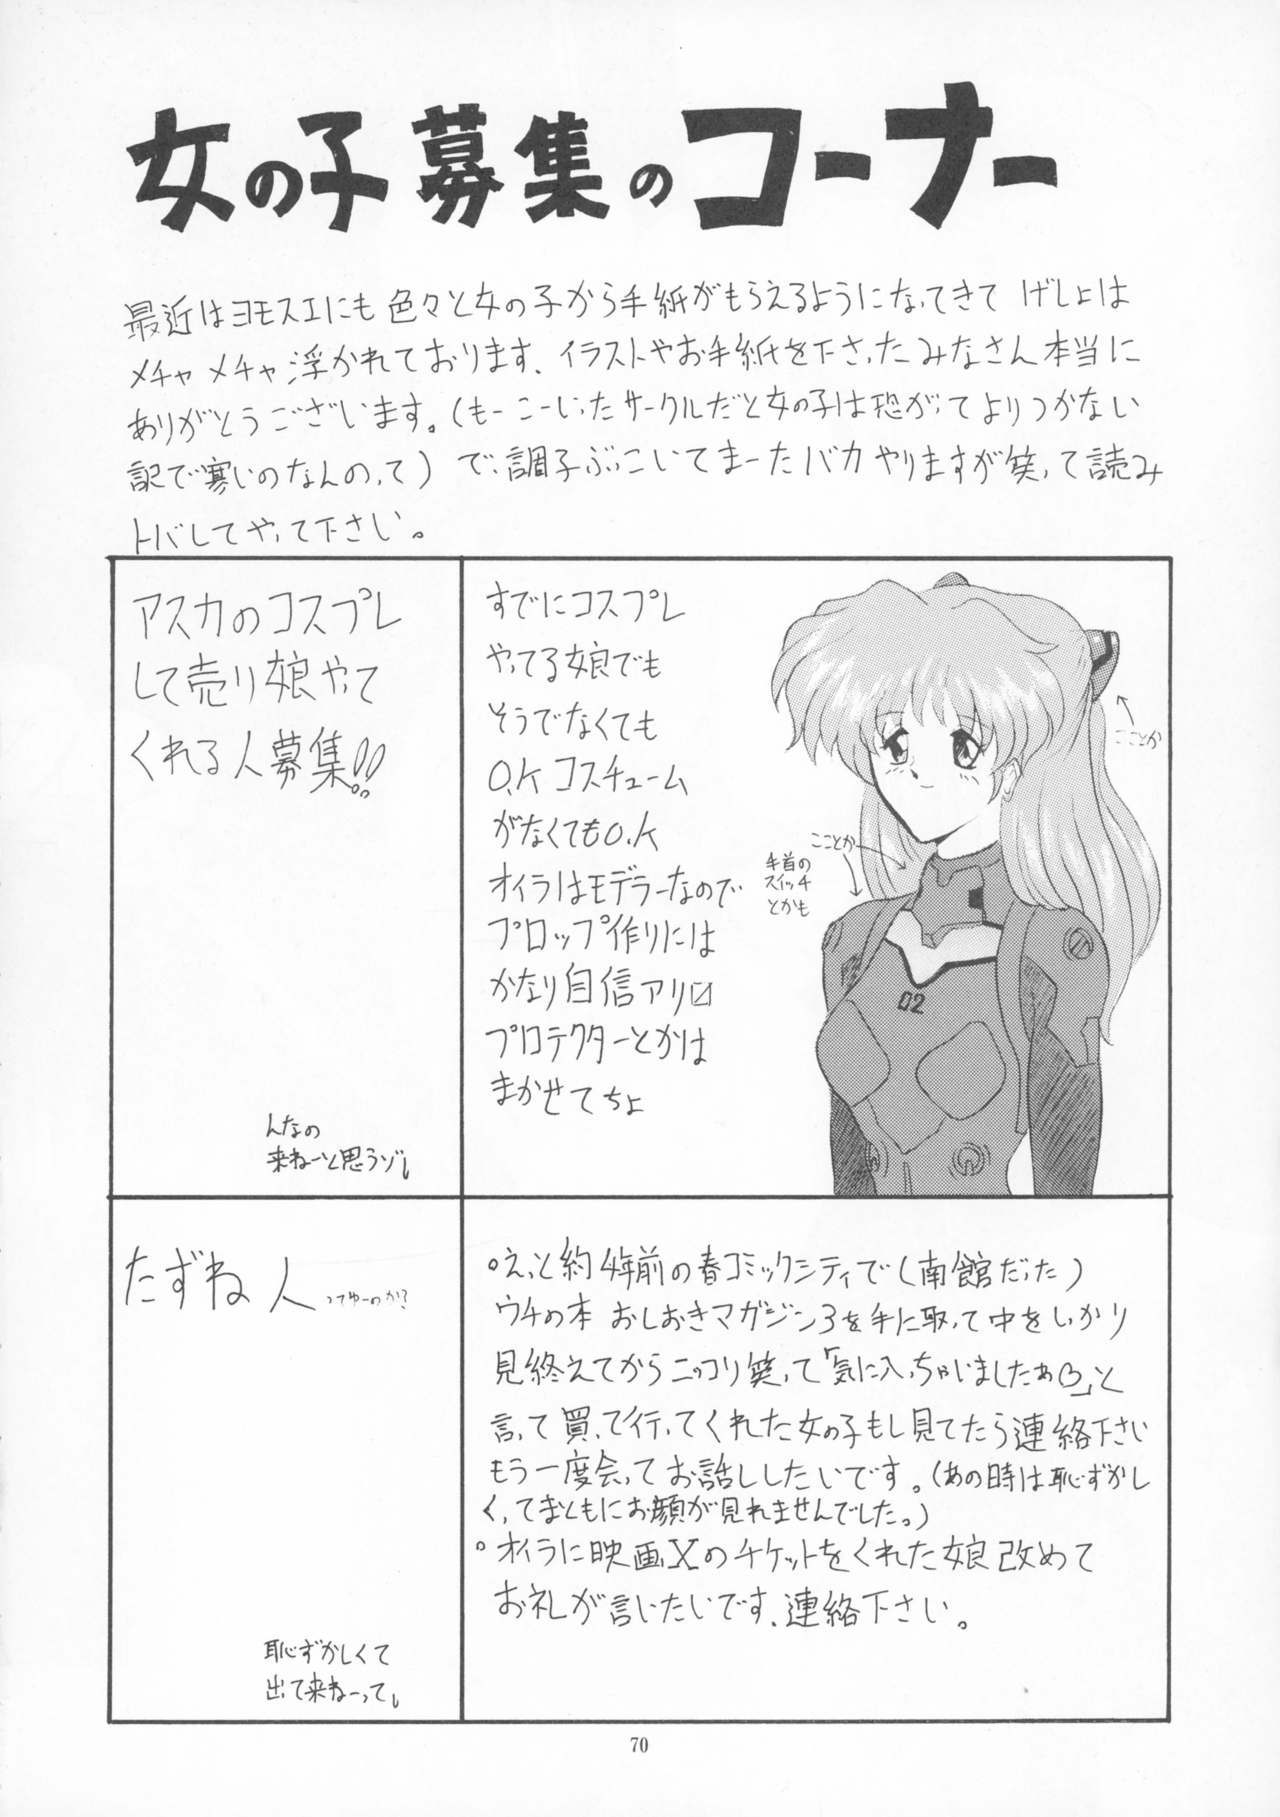 女の子募集のコーナー
最近はヨモスエにも色々と女の子から手紙がもらえるようになってきて げしょは
メチャメチャ浮かれております、イラストやお手紙を下さったみなさん本当に
ありがとうございます。(もーこーいったサークルだと女の子は恐がってよりつかない
記で寒いのなんのって)で、調子ぶっこいてまーたバカやりますが笑って読み
トバしてやって下さい。
アスカのコスプレ
して売り娘やって
くれる人募集!!
んなの
来ねーと思うゾ
すでにコスプレ
やってる娘でも
そうでなくても
O.K コスチューム
がなくてもO.K
オイラはモデラーなので
プロップ作りには
かなり自信アリ
プロテクターとかは
まかせてちょ
こことか
こことか
手首の
スイッチ
とかも
02
たずね人 ってゆーのか?
恥ずかしくて
出て来ねーって
。えっと約4年前の春コミックシティで(南館だった)
ウチの本 おしおきマガジン3を手に取って中をしっかり
見終えてからニッコリ笑って「気に入っちゃいましたぁ」と
言って買って行ってくれた女の子もし見てたら連絡下さい
もう一度会ってお話ししたいです。(あの時は恥ずかし
くってまともにお顔が見れませんでした。)
。オイラに映画Xのチケットをくれた娘改めて
お礼が言いたいです、連絡下さい。
70